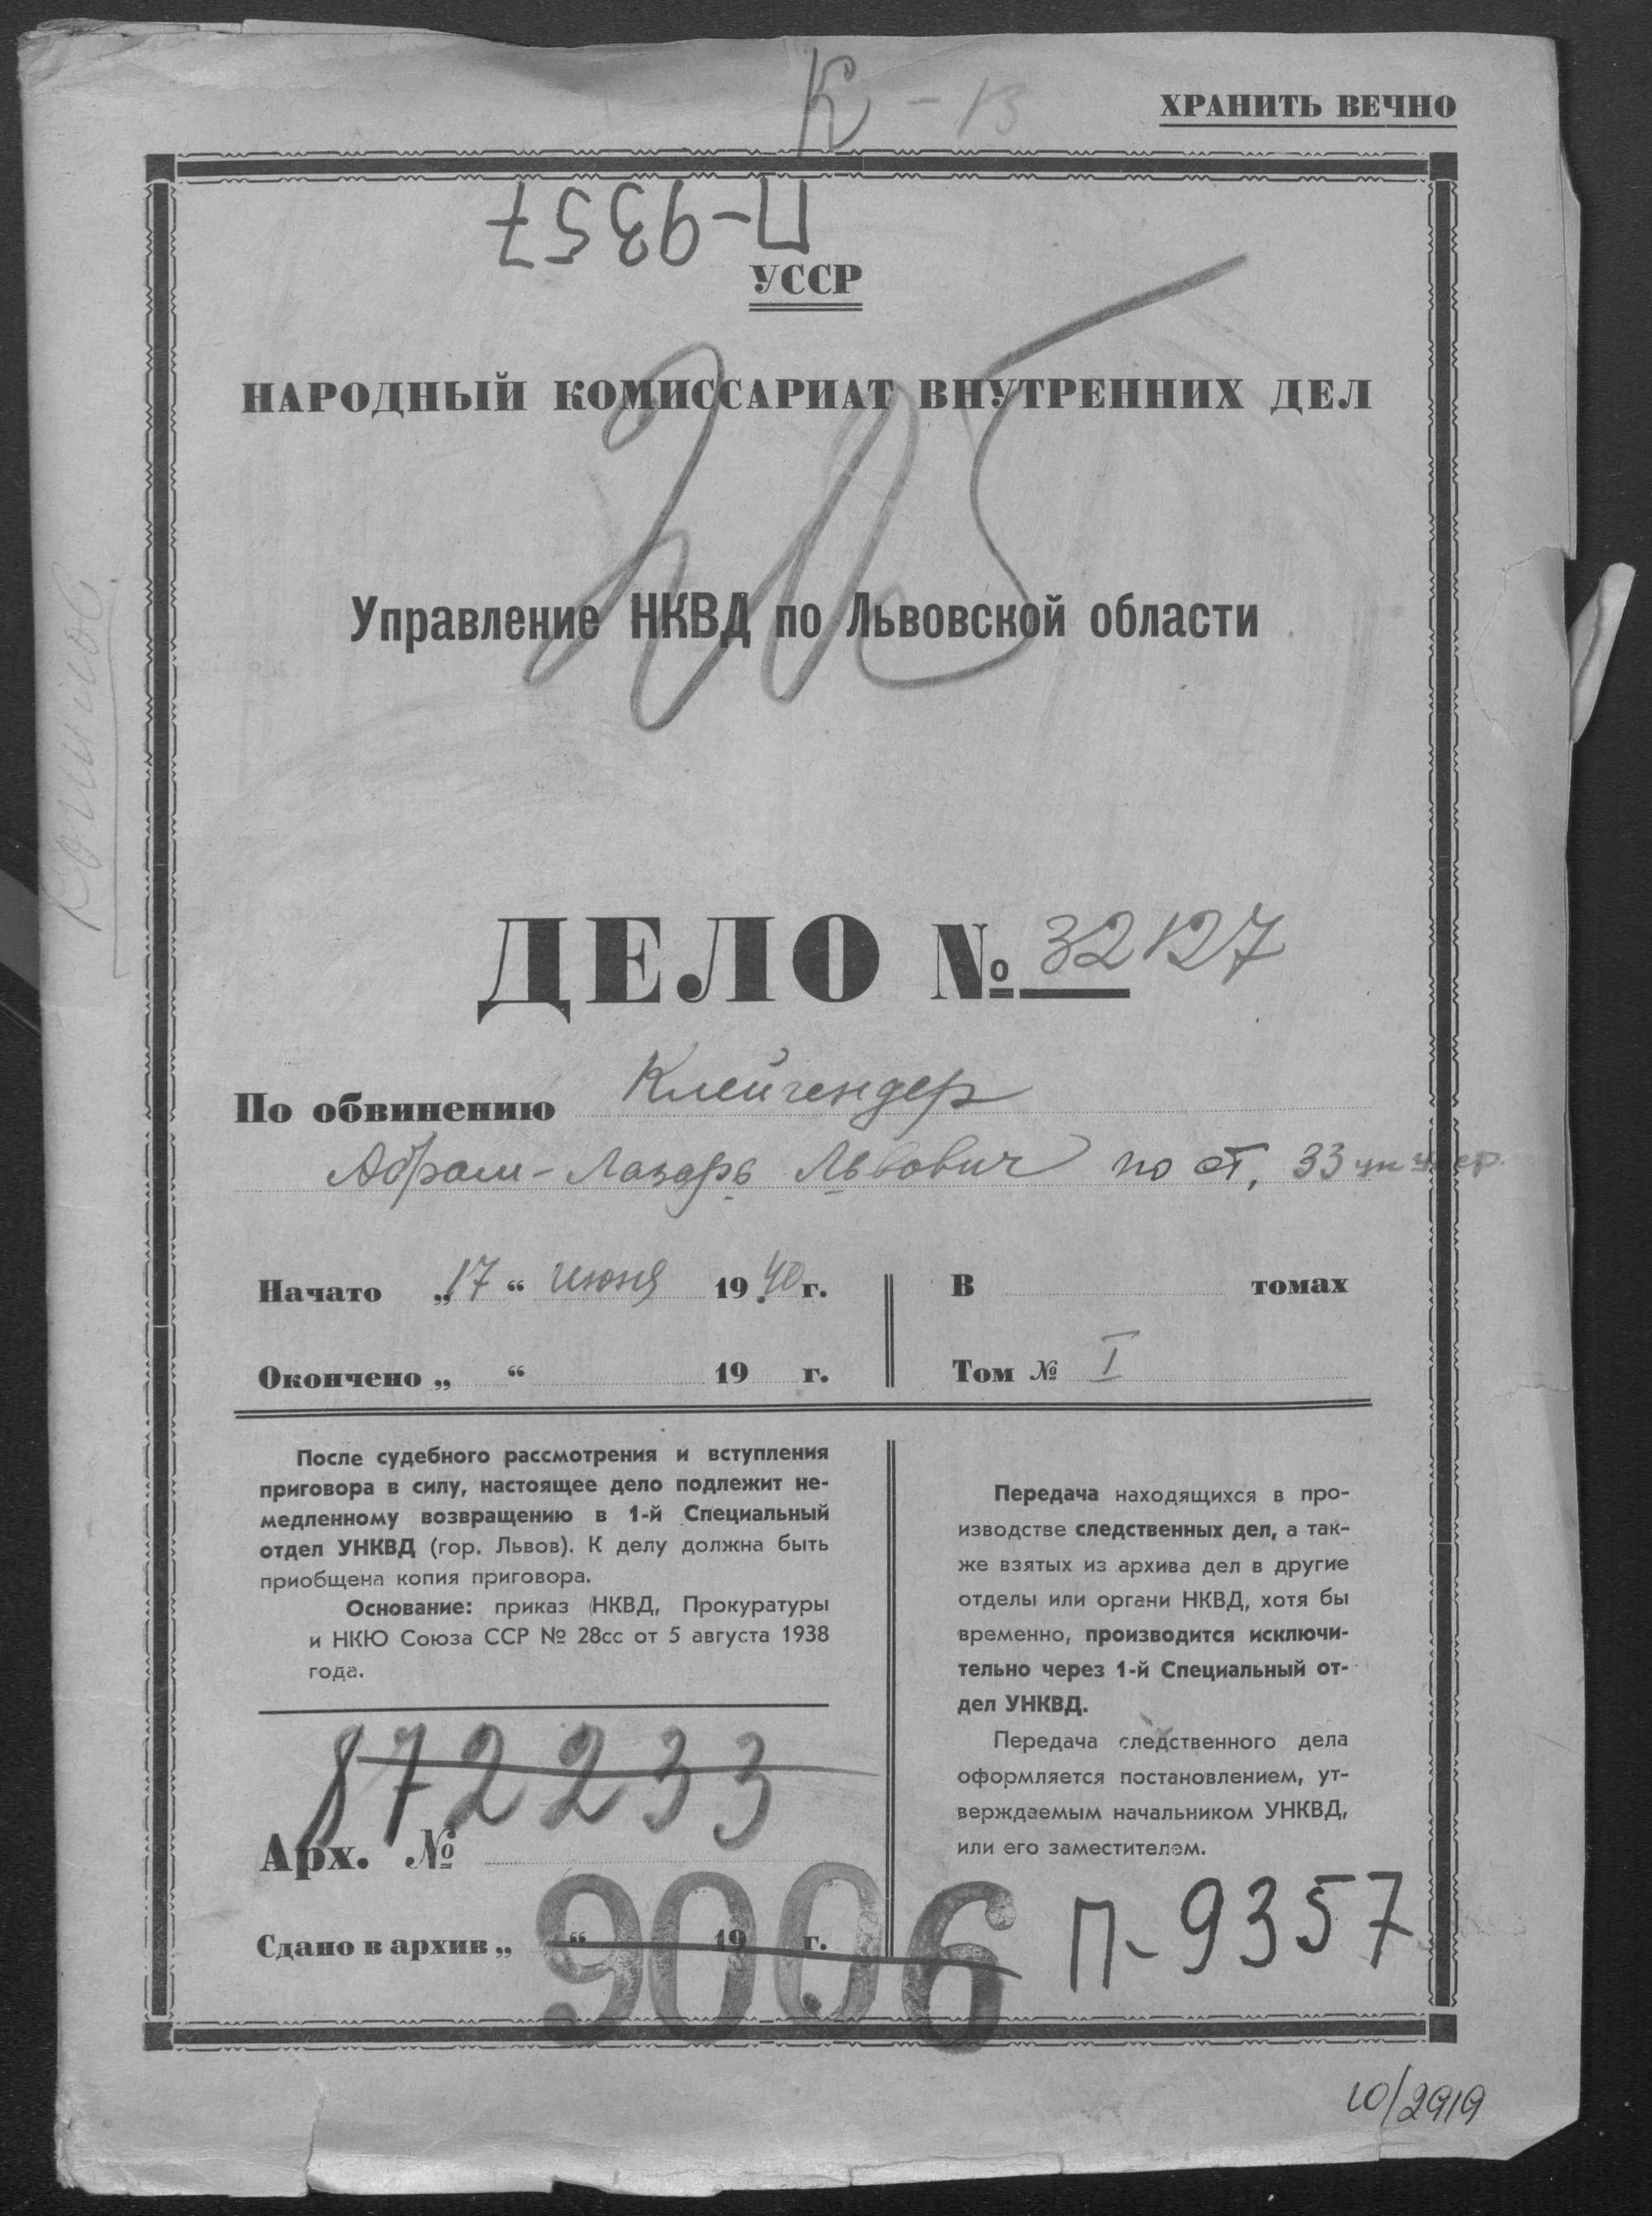 К - 13
ХРАНИТЬ ВЕЧНО
П-9357
УССР
НАРОДНЫЙ КОМИССАРИАТ ВНУТРЕННИХ ДЕЛ
Управление НКВД по Львовской области
ДЕЛО № 32127
По обвинению Клейгендер
Абрам-Лазарь Львович по ст. 33 ук
Начато „17“ июня 1940 г.
Окончено „ “ 19 г.
В томах
Том № I
После судебного рассмотрения и вступления
приговора в силу, настоящее дело подлежит не-
медленному возвращению в 1-й Специальный
отдел УНКВД (гор. Львов). К делу должна быть
приобщена копия приговора.
Основание: приказ НКВД, Прокуратуры
и НКЮ Союза ССР № 28сс от 5 августа 1938
года.
Передача находящихся в про-
изводстве следственных дел, а так-
же взятых из архива дел в другие
отделы или органи НКВД, хотя бы
временно, производится исключи-
тельно через 1-й Специальный от-
дел УНКВД.
Передача следственного дела
оформляется постановлением, ут-
верждаемым начальником УНКВД,
или его заместителем.
872233
Арх. №
Сдано в архив „ “ 19 г.
9006
П-9357
10/2919